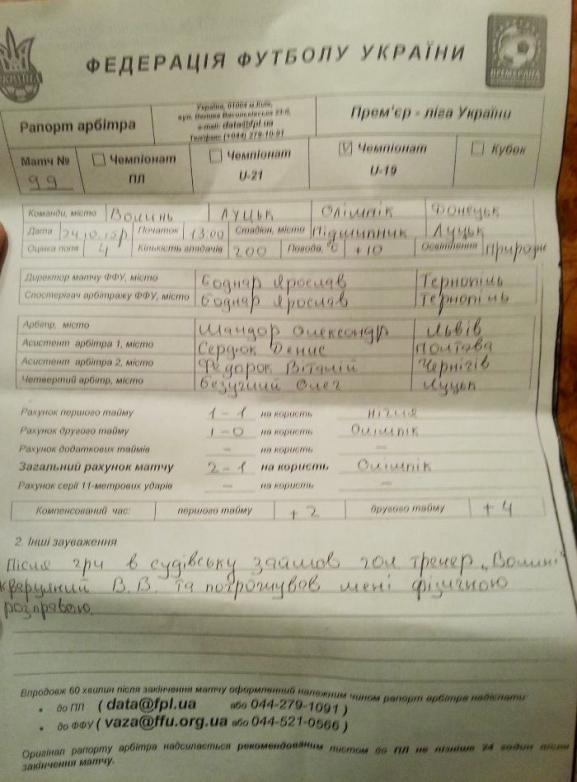 УКРАЇНА
ФЕДЕРАЦІЯ ФУТБОЛУ УКРАЇНИ
Рапорт арбітра
Україна, 01004 м.Київ,
e-mail: data@fpl.ua
Телефакс: (+044) 279-10-91
Прем'єр - ліга України
Матч № 99
Чемпіонат ПЛ
Чемпіонат U-21
Чемпіонат U-19
Кубок
Команди, місто Волинь Луцьк Олімпік Донецьк
Дата 24.10.15р. Початок 13.00 Стадіон, місто Підшипник Луцьк
Оцінка поля 4 Кількість глядачів 200 Погода, °C +10 Освітлення Природне
Директор матчу ФФУ, місто Боднар Ярослав Тернопіль
Спостерігач арбітражу ФФУ, місто Боднар Ярослав Тернопіль
Арбітр, місто Шандор Олександр Львів
Асистент арбітра 1, місто Сердюк Денис Полтава
Асистент арбітра 2, місто Федорок Віталій Чернігів
Четвертий арбітр, місто Безучний Олег Луцьк
Рахунок першого тайму 1-1 на користь нічия
Рахунок другого тайму 1-0 на користь Олімпік
Рахунок додаткових таймів – на користь –
Загальний рахунок матчу 2-1 на користь Олімпік
Рахунок серії 11-метрових ударів – на користь –
Компенсований час: першого тайму +2 другого тайму +4
2. Інші зауваження
Після гри в судівську зайшов гол тренер „Волині"
Кварцяний В.В. та погрожував мені фізичною
розправою.
Впродовж 60 хвилин після закінчення матчу оформлений належним чином рапорт арбітра надіслати:
• до ПЛ ( data@fpl.ua або 044-279-1091 )
• до ФФУ ( vaza@ffu.org.ua або 044-521-0566 )
Оригінал рапорту арбітра надсилається рекомендованим листом до ПЛ не пізніше 24 годин після
закінчення матчу.